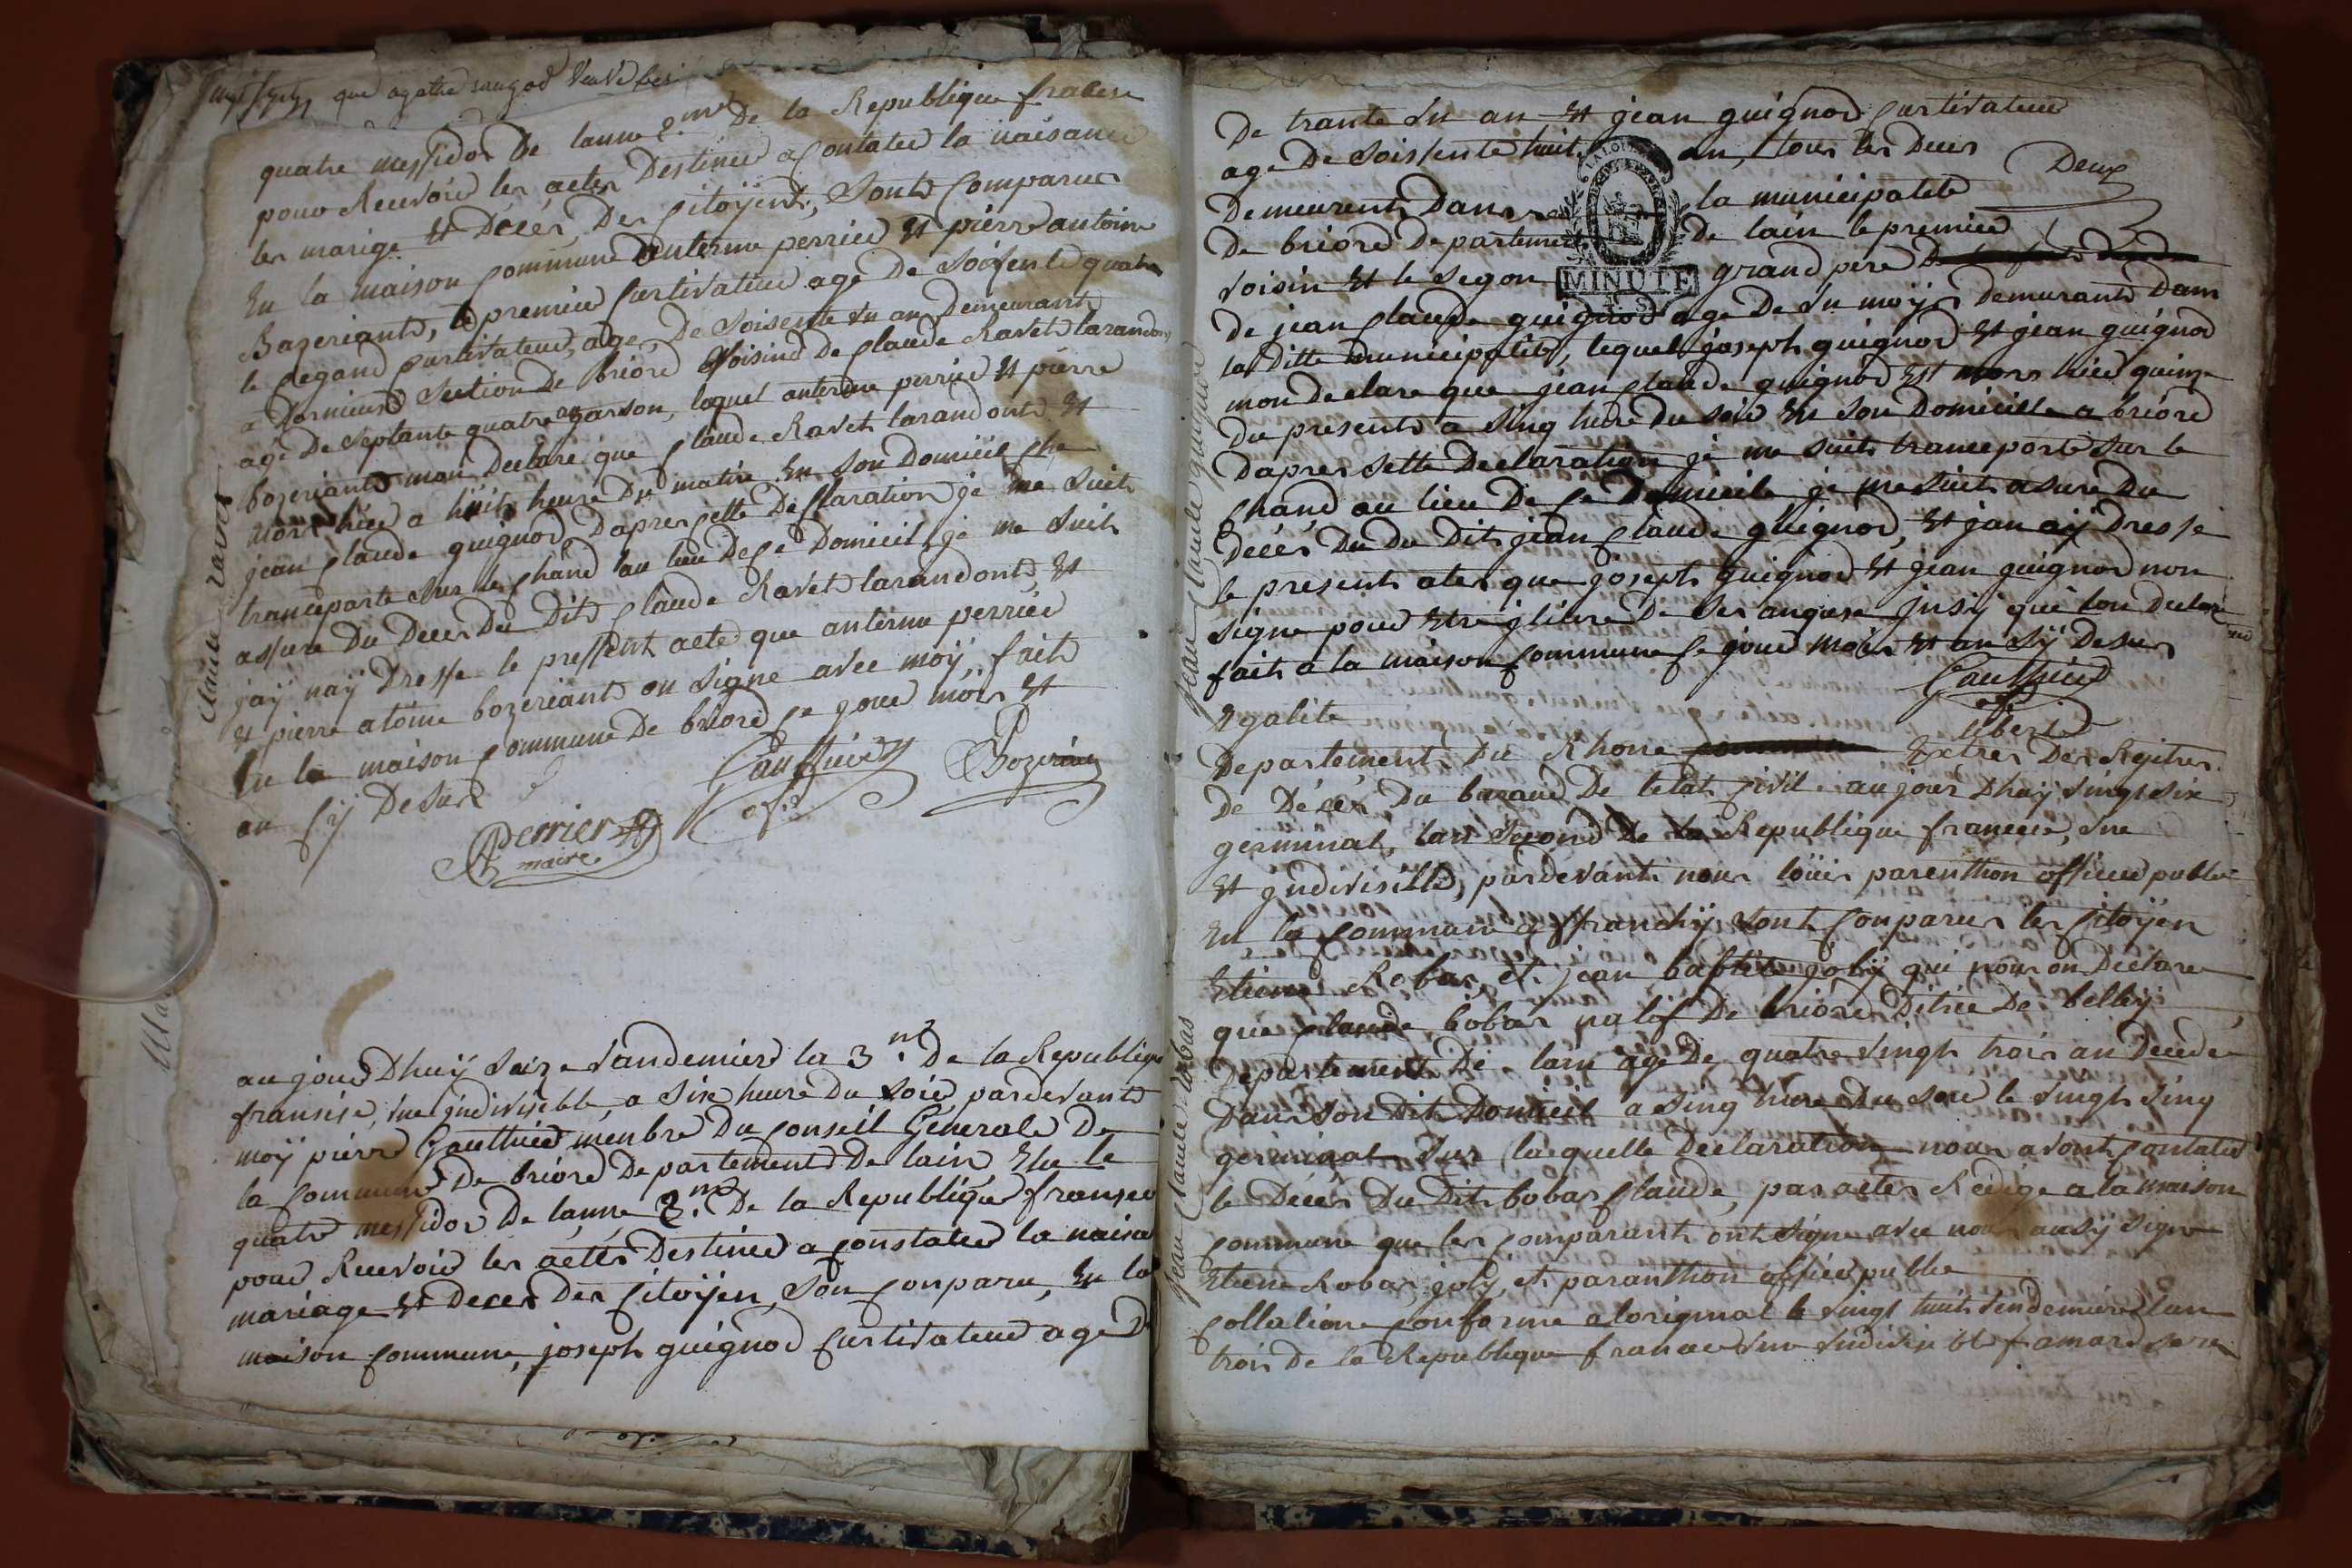 que agathe
quatre messidor De lanne 2.me De la Republique franse
pour Recevoir les actes Destinee a contatee la naisance
les marige et Deces, Des citoÿent, Sonts Comparus
En la maison Commune anterme perried et pierre antoine
Bozeriants, le premier Curtivateur age De Soisente quatre
le segand Curtivateur, age, De Soisente un an Demeurants
a Section De briord Voisind De Claude Ravet larandon
age De Septante quatre an garson, loquel anterme perried et pierre
bozeriants mon Declaré que Claude Ravet larandonts Est
mort hier a huit heure Du matin En Son Domicil che
jean Claude guignod, Dapres cette Declaration je me Suit
tranceporte Sur le Chand au lieu De ce Domicil, je me Suit
assure Du Deces Du Dit Claude Ravet larandonts, et
jaÿ naÿ Dresse le present acte que anterme perried
et pierre atoine bozeriants on Signe avec moÿ, fait
En la maison Commune De briord ce jour mois et
an sÿ Desur
Gauthier off.
Bozeriant
Perrier
maire
Claude ravet
au jour Dhuÿ Seize Vandemier la 3.me De la Republique
fransise, une indivisible, a Sixe heure Du Soir pardevant
moÿ pierre Gauthier menbre Du Conseil Génerale De
la Commune De briord Departement De lain Elu le
quatre messidor De lanne 2.me De la Republique franse
pour Recevoir les actes Destinee a Constatee la naisa
mariage et Deces Des Citoÿen, Son Conparu, En la
maison Commune, joseph guignod Curtivateur age D
De trante un an Et jean guignod Curtivateur
age De Soissente huit an, tous les Deus
Deux
Demeurents Dans la municipalité
De briord Departement De lain le premier
LA LOI
MINUTE
voisin et le Segon grand pere
De jean Claude guignod age De un moÿs Demurants Dans
la Ditte municipalité, lequel joseph guignod et jean guignod
mon Declare que jean Claude guignod Est mors hier quinze
Du presents a Sinq heure du Soir En Son Domicille a briord
Dapres Sette Declaration je me Suit tranceporte Sur le
Chand au lieu De ce Domicile je me Suit asure Du
Deces Du Du Dit jean Claude guignod, et jan aÿ Dresse
le present ates que joseph guignod et jean guignod non
Signe pour Etre De Ses jnsÿ que lon Declare
fait a la maison Commune ce jour mois et an Sÿ Desur
Gauthier off
Jean Claude guignod
Egalite
liberté
Departement Du Rhone Extres Des Registres
De Déces, Du buraud De letat Civil. aujour Dhuÿ Vingt Six
germinal, lan Second De la Republique francese, une
et jndivisible, pardevant nous louis parenthon officier public
En la Commune affranchÿ Sont Comparus les Citoÿen
Etiene Robas, et jean baptiste jolÿ qui nous on Declare
que Claude bobas natif De briord Ditrie De belleÿ
Departement De lain age De quatre Vingt trois an Decede
Dans Son Dit Domicil a Sinq heure Du Soir le Vingt Sinq
germinal Sur laquelle Declaration nous avont Contatée
le Déces Du Dit bobas Claude, par actes Redige a la maison
Commune que les Comparant ont Signe avec nous ausÿ Signe
Etiene Robas, jolÿ, et paranthon officier public
Collatione Conforme a loriginal le Vingt huit Vendemiere lan
trois De la Republique francese une indivisible
Jean Claude bobas